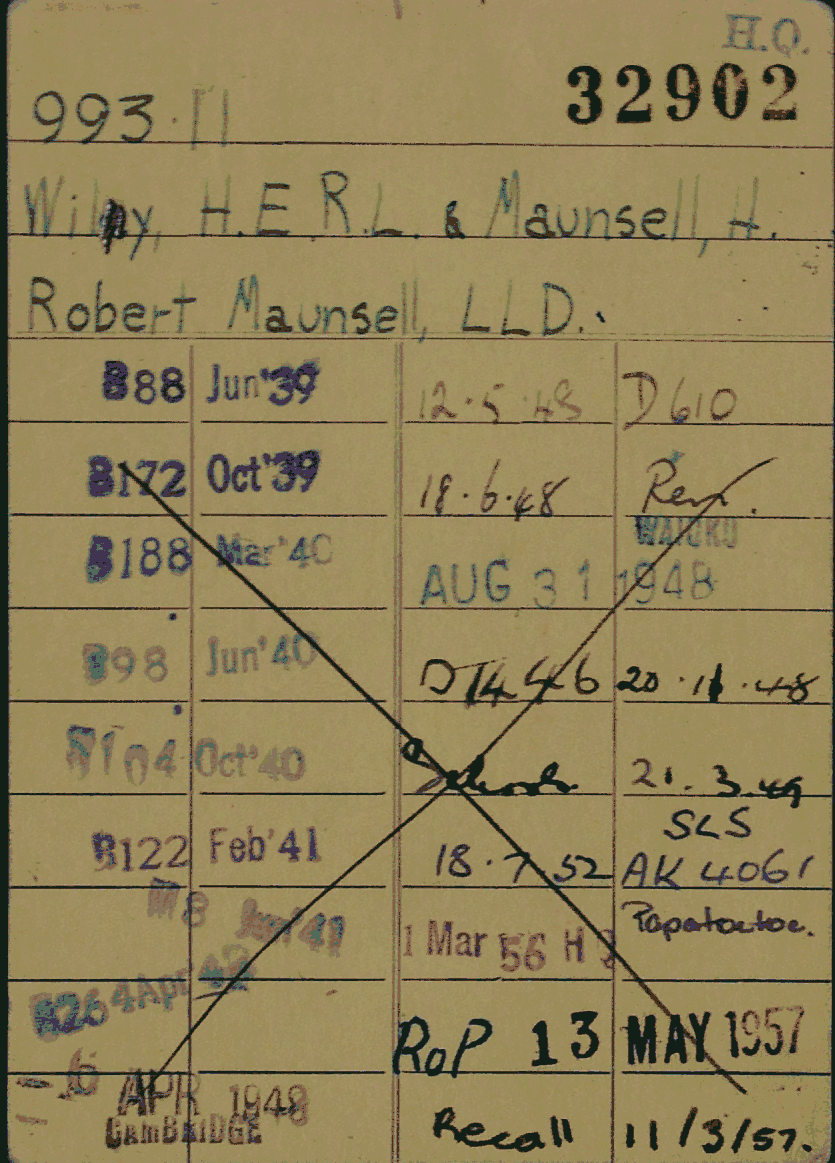 H.Q.
32902
993.11
Wily, H.E.R.L. & Maunsell, H.
Robert Maunsell, LLD.
B88 Jun'39 12.5.48 D610
B172 Oct'39 18.6.48 Ren.
WAIUKU
B188 Mar'40 AUG 31 1948
B98 Jun'40 D1446 20.11.48
B104 Oct'40 Schools 21.3.49
SLS
B122 Feb'41 18.7.52 AK 4061
M8 Papatoetoe.
1 Mar 56 H
B264 Apr
RoP 13 MAY 1957
APR 1948
CAMBRIDGE Recall 11/3/57.